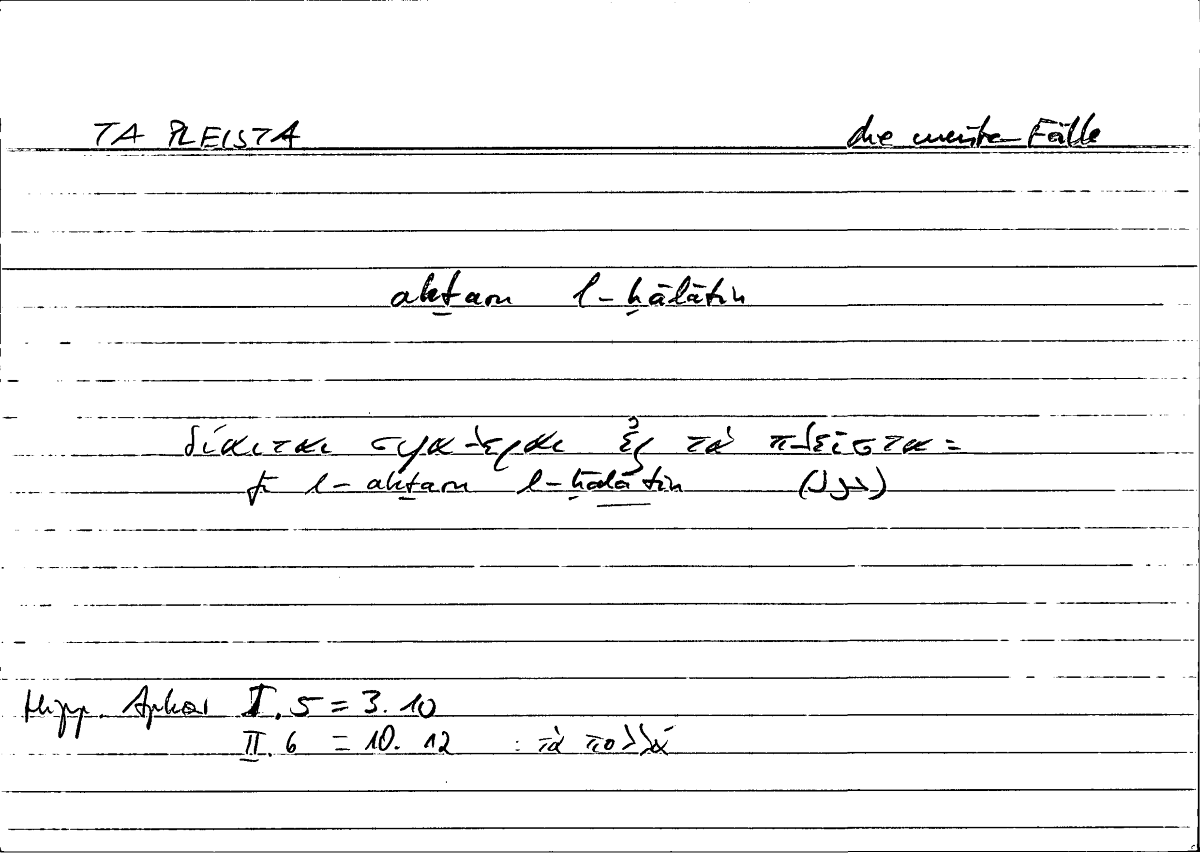 TA PLEISTA die meisten Fälle
akṯaru l-ḥālātin
δίαιται σφαλεραὶ ἐς τὰ πλεῖστα =
fī l-akṯaru l-ḥālātin
Hipp. Aphor I. 5 = 3. 10
II. 6 = 10. 12 : τὰ πολλά